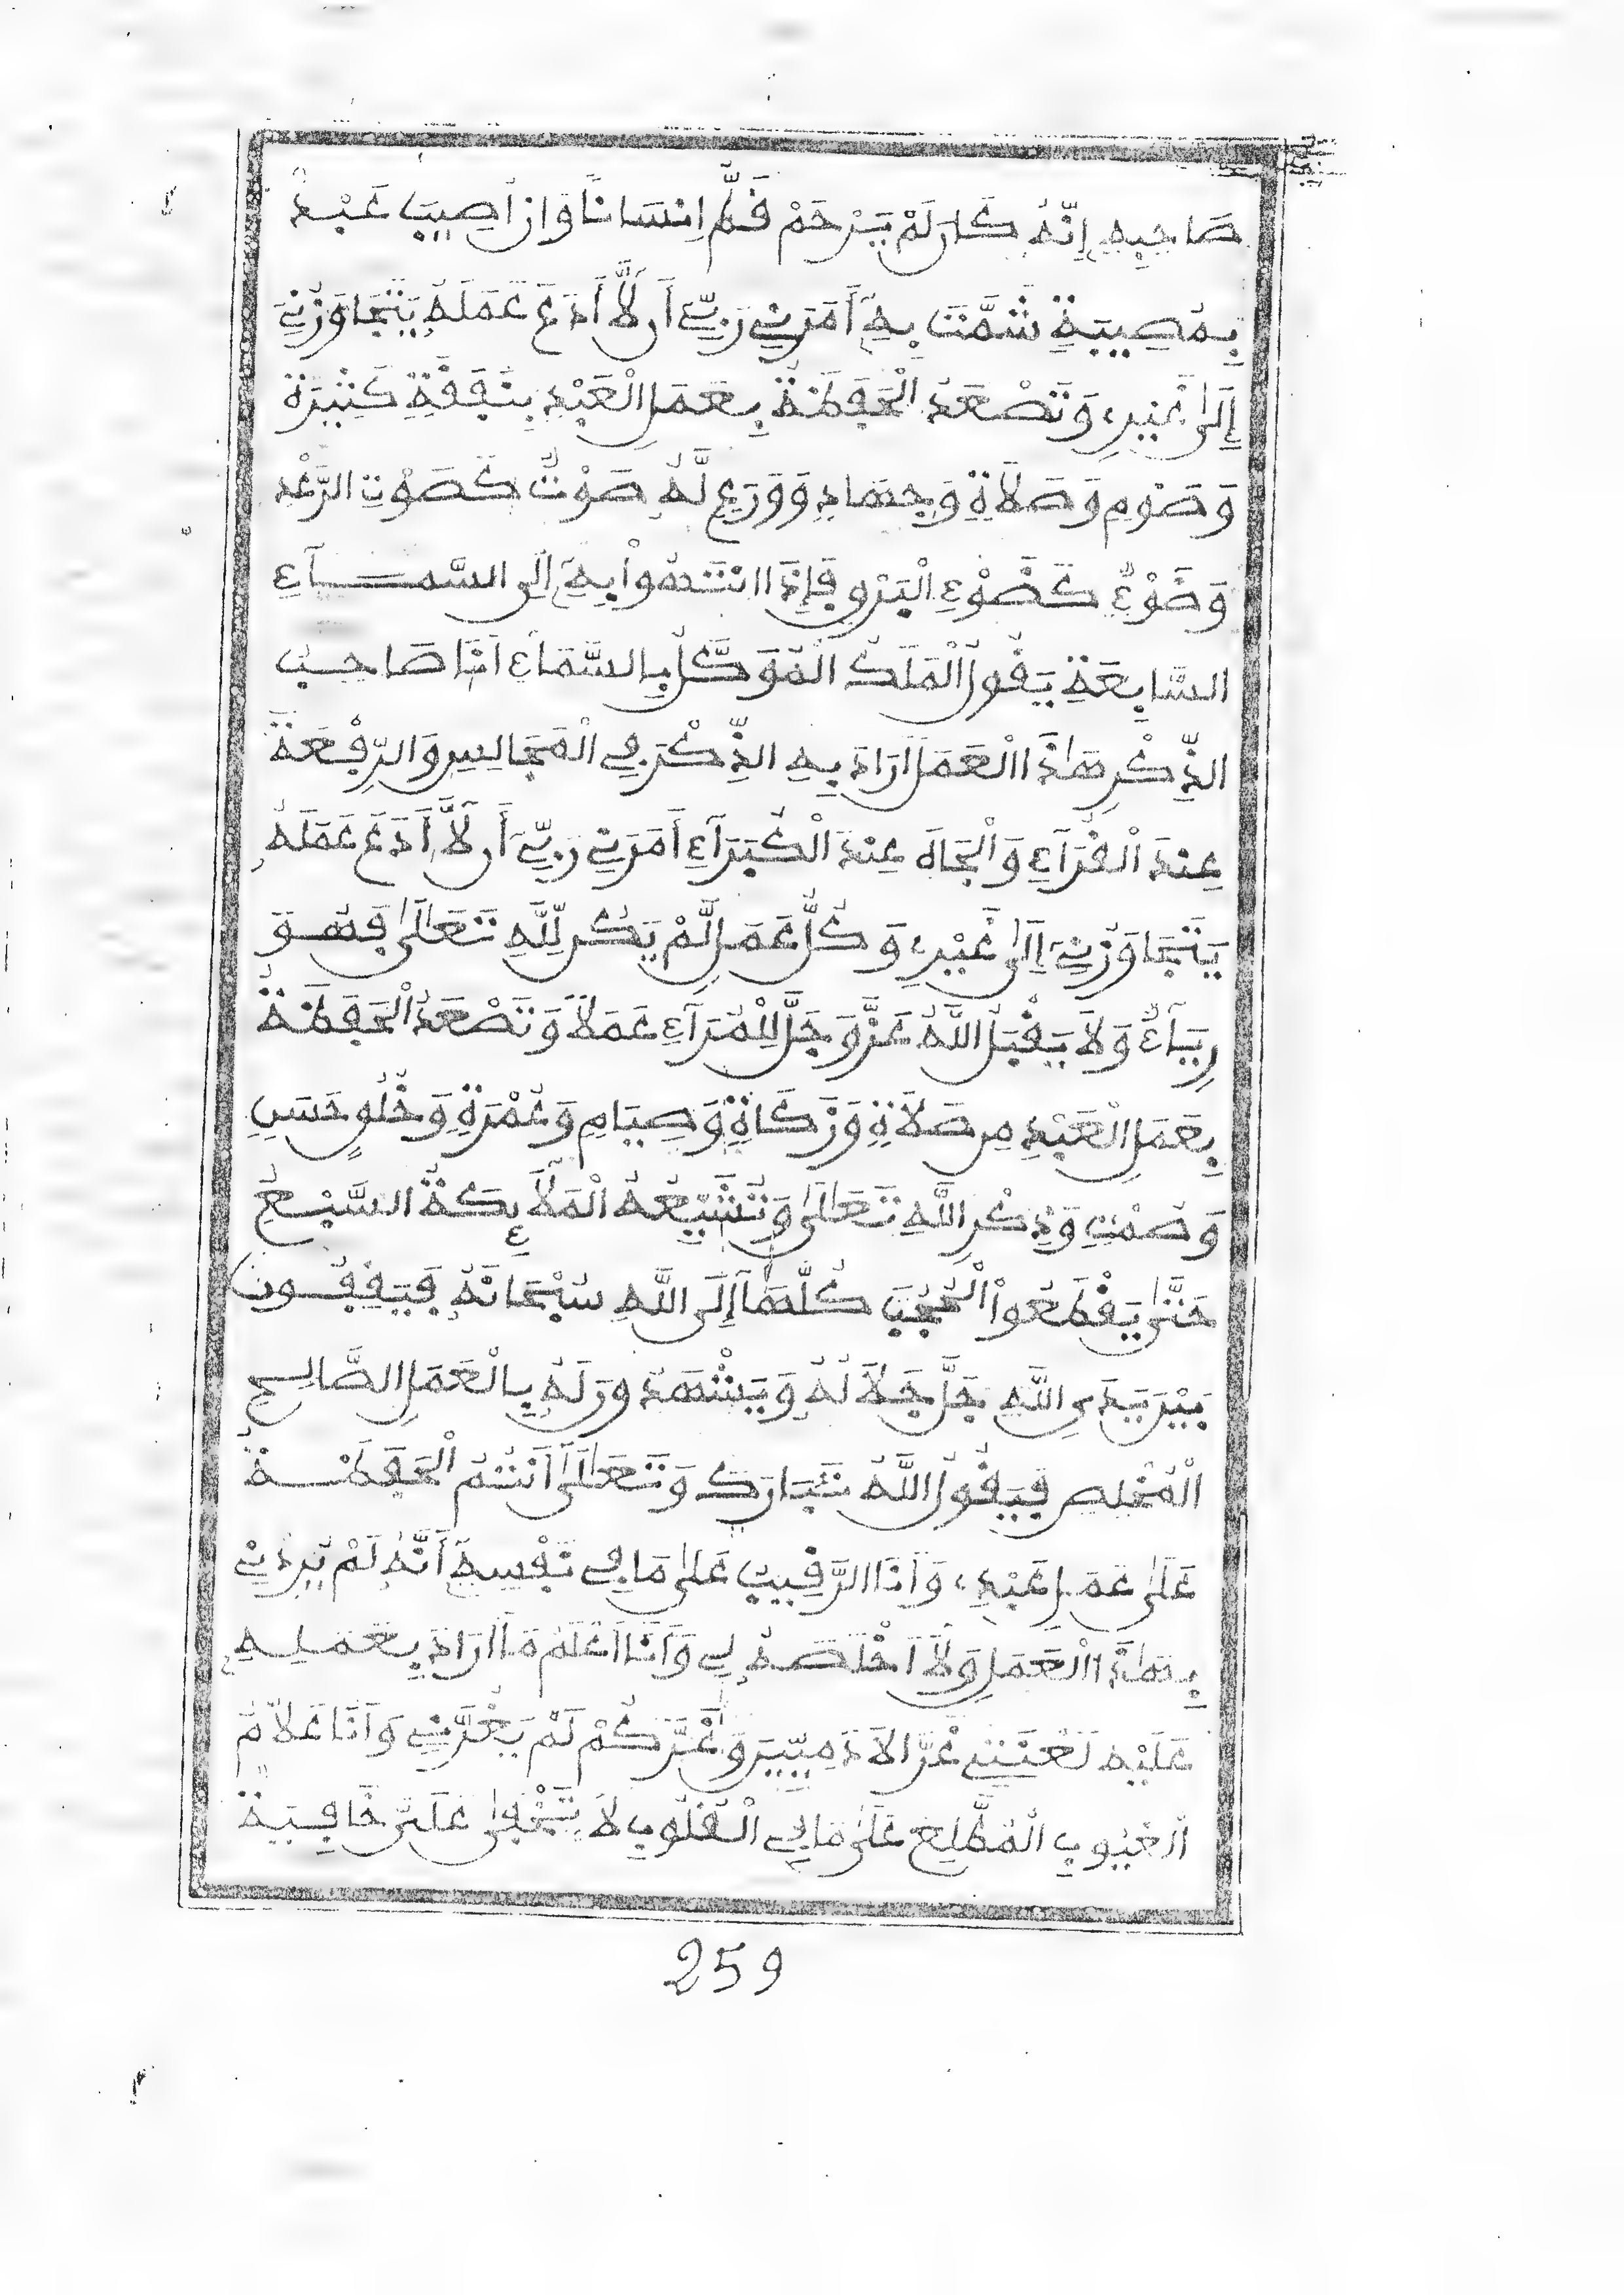 صَاحِبِهِ إِنَّهُ كَانَ لَمْ يَرْحَمْ قَطُّ إِنسَانًا وَإِنْ أُصِيبَ عَبْدٌ
بِمُصِيبَةٍ شَمَّتَ بِهِ أَمَرَنِي رَبِّي أَن لَّا أَدَعَ عَمَلَهُ يَتَجَاوَزُنِي
إِلَىٰ غَيْرِي وَتَصْعَدُ الْحَفَظَةُ بِعَمَلِ الْعَبْدِ بِنَفَقَةٍ كَثِيرَةٍ
وَصَوْمٍ وَصَلَاةٍ وَجِهَادٍ وَوَرَعٍ لَّهُ صَوْتٌ كَصَوْتِ الرَّعْدِ
وَضَوْءٌ كَضَوْءِ الْبَرْقِ فَإِذَا انْتَهَوْا بِهِ إِلَى السَّمَآءِ
السَّابِعَةِ يَقُولُ الْمَلَكُ الْمُوَكَّلُ بِالسَّمَاءِ أَنَا صَاحِبُ
الذِّكْرِ هَٰذَا الْعَمَلُ أَرَادَ بِهِ الذِّكْرَ فِي الْمَجَالِسِ وَالرِّفْعَةَ
عِنْدَ الْقُرَآءِ وَالْجَاهَ عِنْدَ الْكُبَرَآءِ أَمَرَنِي رَبِّي أَن لَّا أَدَعَ عَمَلَهُ
يَتَجَاوَزُنِي إِلَىٰ غَيْرِي وَكُلُّ عَمَلٍ لَّمْ يَكُن لِّلَّهِ تَعَالَىٰ فَهُوَ
رِيَآءٌ وَلَا يَقْبَلُ اللَّهُ عَزَّ وَجَلَّ لِلْمُرَآءِ عَمَلًا وَتَصْعَدُ الْحَفَظَةُ
بِعَمَلِ الْعَبْدِ مِن صَلَاةٍ وَزَكَاةٍ وَصِيَامٍ وَعُمْرَةٍ وَخُلُقٍ حَسَنٍ
وَصَمْتٍ وَذِكْرِ اللَّهِ تَعَالَىٰ وَتُشَيِّعُهُ الْمَلَآئِكَةُ السَّبْعُ
حَتَّىٰ يَقْطَعُواْ الْحُجُبَ كُلَّهَا إِلَى اللَّهِ سُبْحَانَهُ فَيَقِفُونَ
بَيْنَ يَدَيِ اللَّهِ جَلَّ جَلَالُهُ وَيَشْهَدُونَ لَهُ بِالْعَمَلِ الصَّالِحِ
الْمُخْلِصِ فَيَقُولُ اللَّهُ تَبَارَكَ وَتَعَالَىٰ أَنْتُمُ الْحَفَظَةُ
عَلَىٰ عَمَلِ عَبْدِي وَأَنَا الرَّقِيبُ عَلَىٰ مَا فِي نَفْسِهِ أَنَّهُ لَمْ يُرِدْنِي
بِهَٰذَا الْعَمَلِ وَلَا أَخْلَصَهُ لِي وَأَنَا أَعْلَمُ مَا أَرَادَ بِعَمَلِهِ
عَلَيْهِ لَعْنَتِي غَرَّ الْآدَمِيِّينَ وَغَرَّكُمْ لَمْ يَغُرَّنِي وَأَنَا عَلَّامُ
الْغُيُوبِ الْمُطَّلِعُ عَلَىٰ مَا فِي الْقُلُوبِ لَا تَخْفَىٰ عَلَيَّ خَافِيَةٌ
259